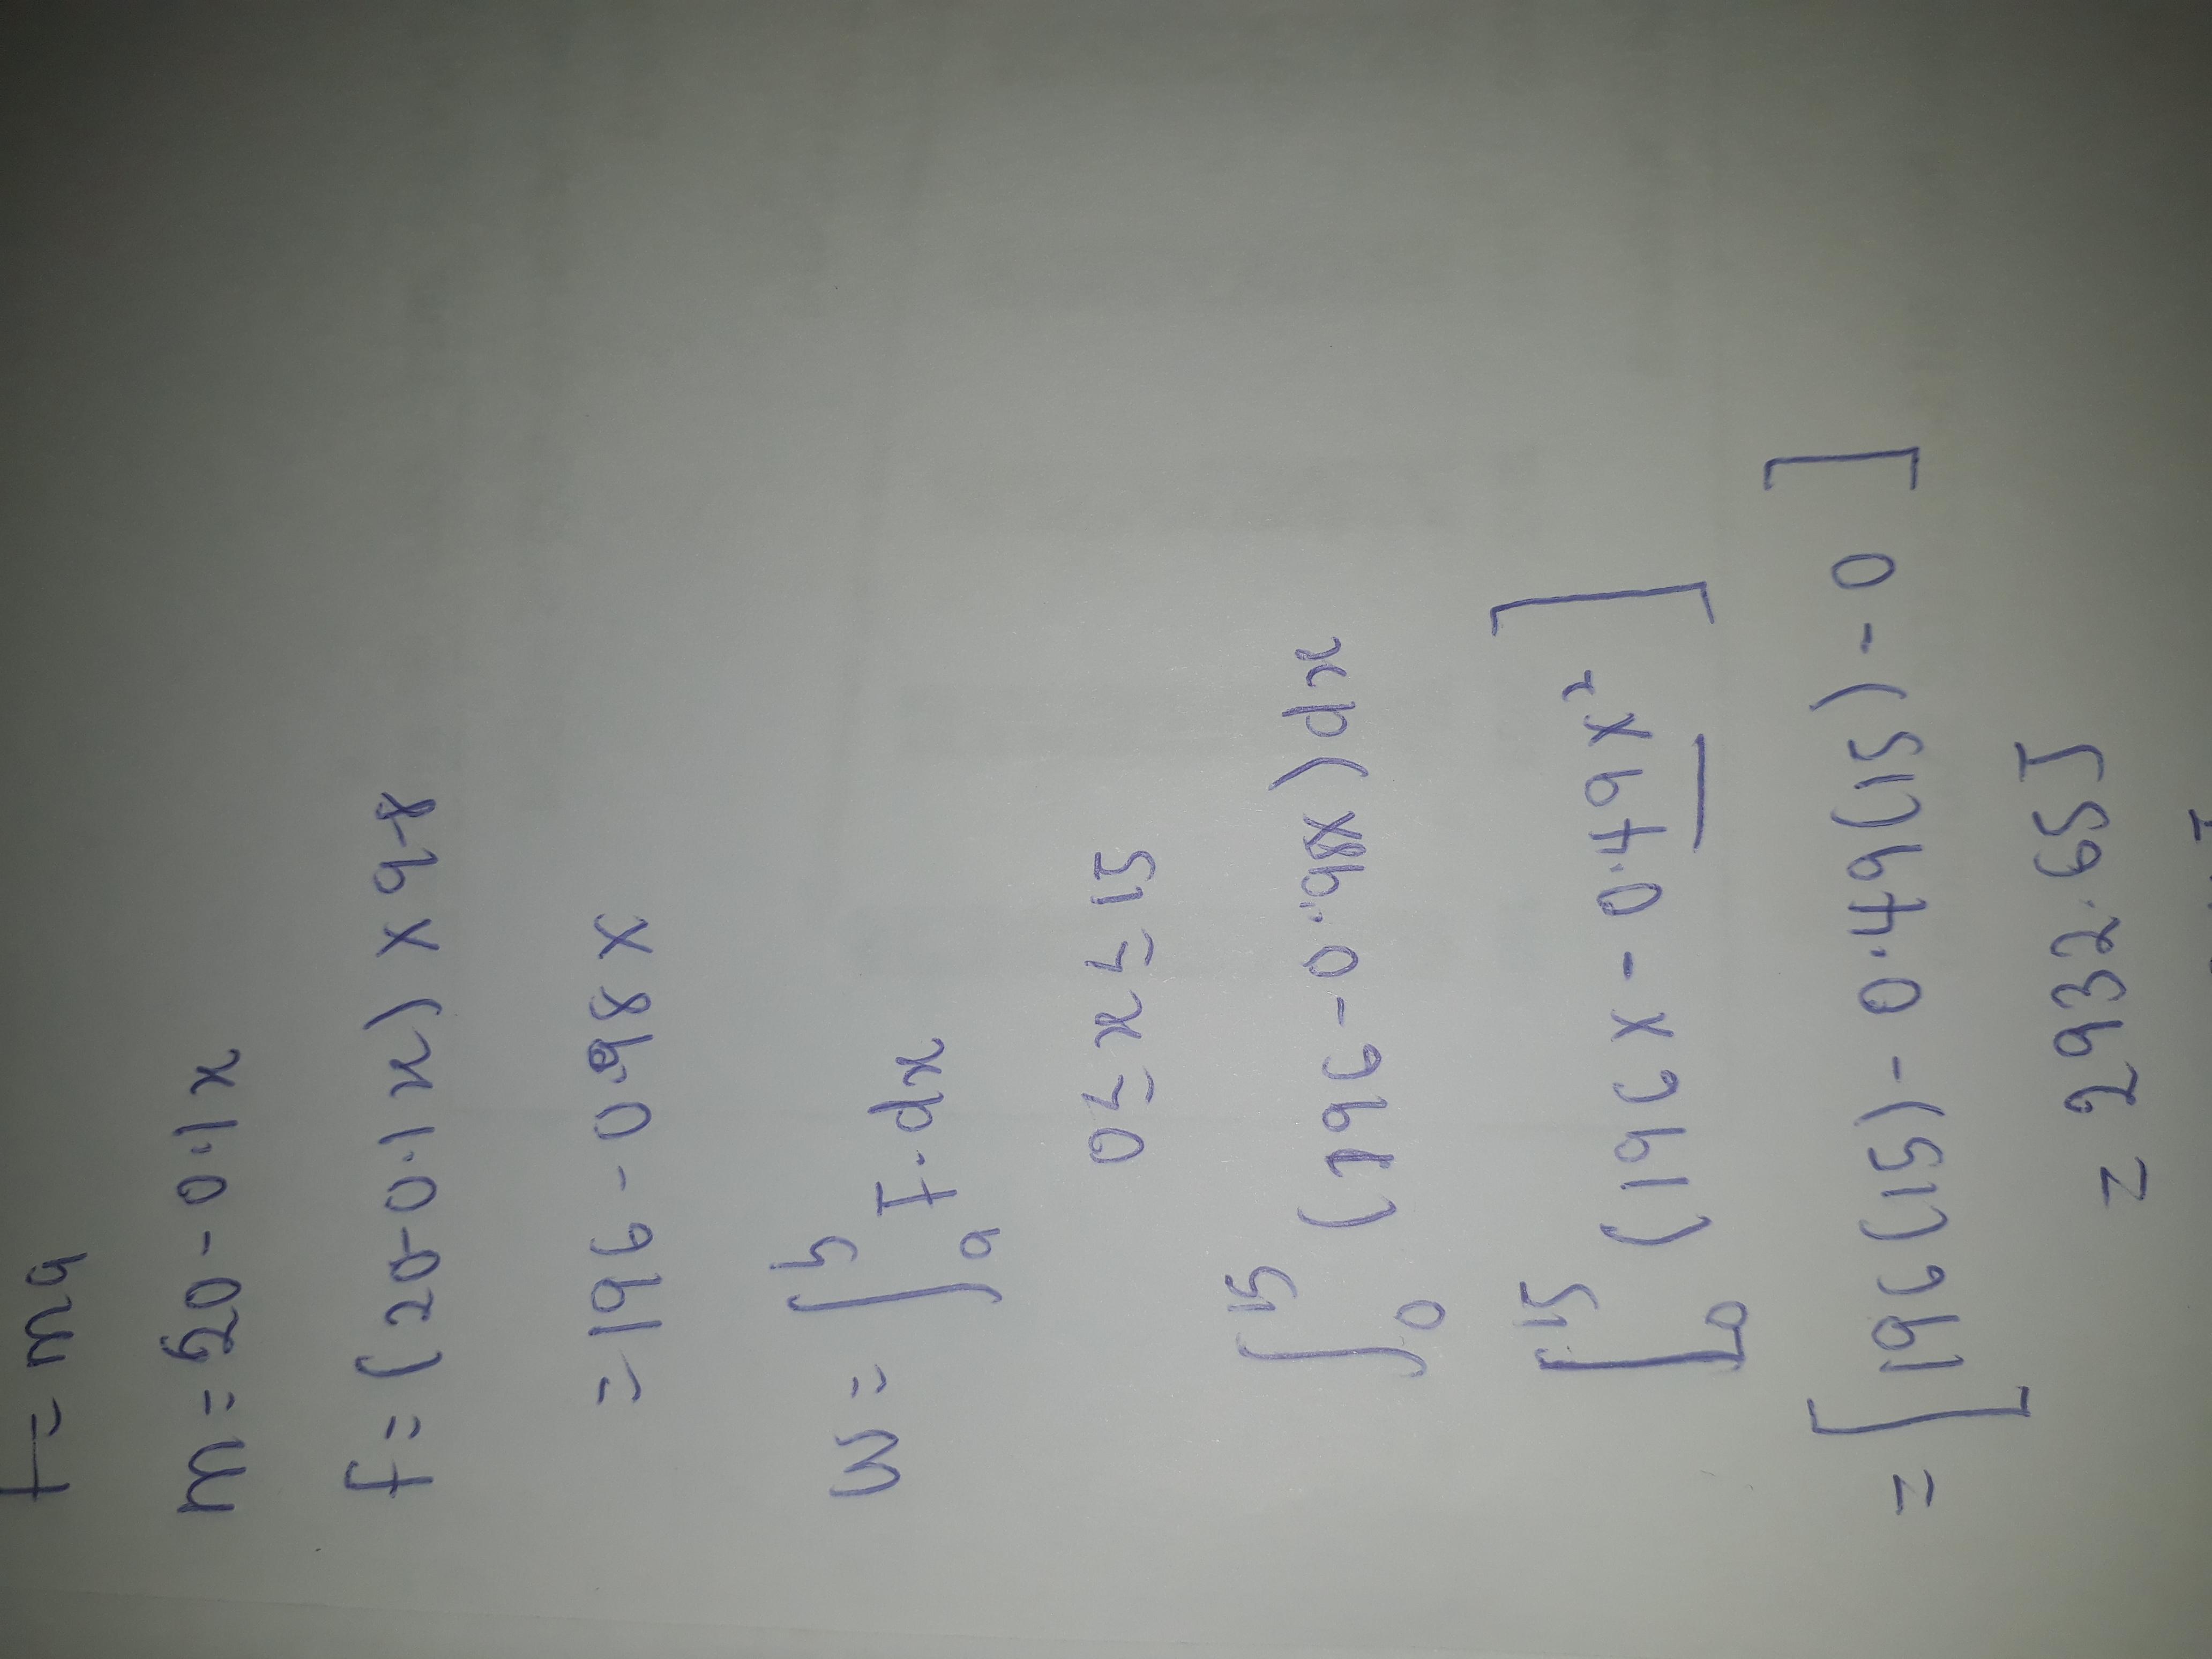 F = ma
m = 20 - 0.1x
f = (20-0.1x) x 9.8
= 196 - 0.98x
W = ∫ₐᵇ F.dx
0 ≤ x ≤ 15
∫₀¹⁵ (196 - 0.98x) dx
[(196x - 0.49x²]₀¹⁵
= [196(15) - 0.49(15) - 0]
= 2932.65J